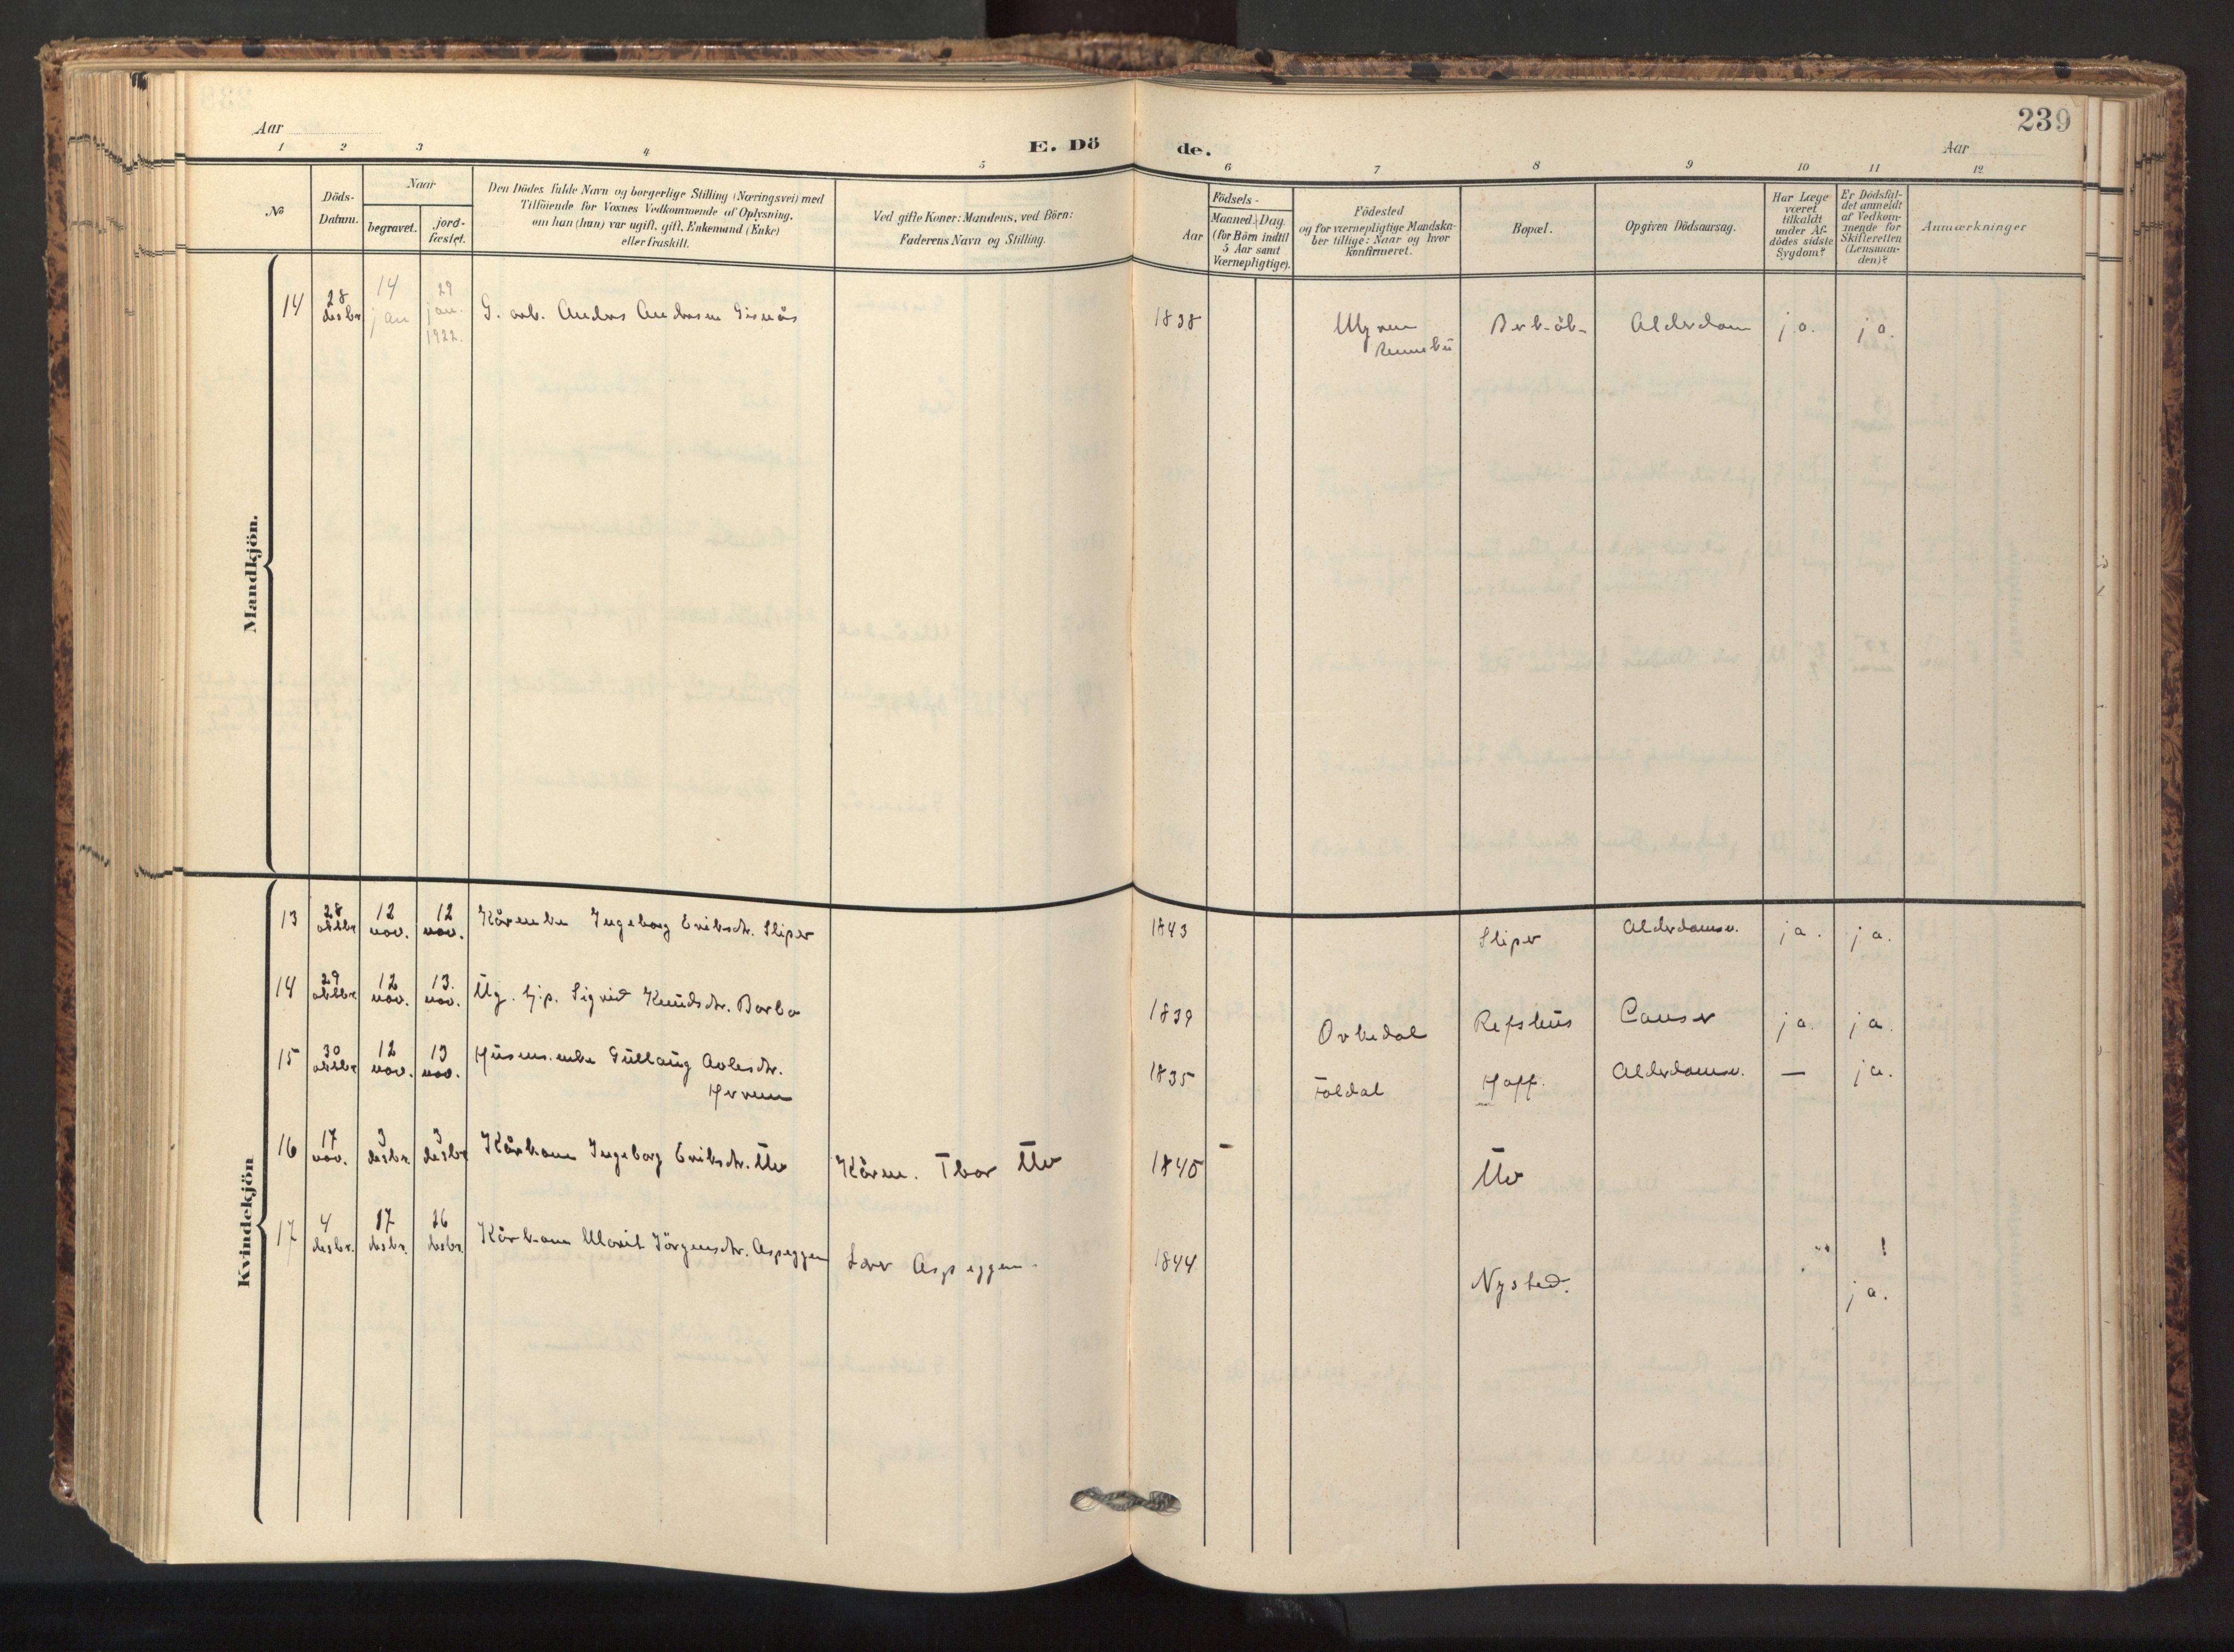 239
Aar
E. Dö
de.
Aar
1 2 3 4 5 6 7 8 9 10 11 12
No
Döds-
Datum.
Naar
begravet.
jord-
fæstet.
Den Dödes fulde Navn og borgerlige Stilling (Næringsvei) med
Tilföiende for Voxnes Vedkommende af Oplysning,
om han (hun) var ugift, gift, Enkemand (Enke)
eller fraskilt.
Ved gifte Koner: Mandens, ved Börn:
Faderens Navn og Stilling.
Födsels-
Aar
Maaned. Dag.
(for Börn indtil
5 Aar samt
Værnepligtige).
Födested
og for værnepligtige Mandska-
ber tillige: Naar og hvor
konfirmeret.
Bopæl.
Opgiven Dödsaarsag.
Har Læge
været
tilkaldt
under Af-
dödes sidste
Sygdom?
Er Dödsfal-
det anmeldt
af Vedkom-
mende for
Skifteretten
(Lensman-
den)?
Anmærkninger
Mandkjön.
14 28 desbr. 14 jan 29 jan. 1922. G. arb. Anders Andersen Gisnås 1838 Rennebu Alderdom ja. ja.
Kvindekjön
13 28 oktbr 12 nov. 12 nov. Kårenke Ingeborg Eriksdtr. Sliper 1843 Sliper Alderdomsv. ja. ja.
14 29 oktbr 12 nov. 13. nov. Ug. Sigrid Knudsdtr. Barbo 1839 Orkedal Refshus Cancer ja. ja.
15 30 oktbr 12 nov. 13 nov. Husms.enke Gullaug Avlesdtr. 1835 Foldal Hoff. Alderdomsv. — ja.
Horrem
16 17 nov. 3 desbr. 3 desbr Kårkone Ingeborg Eriksdtr. Uv Kårm. Thor Uv 1845 - Uv
17 4 desbr. 17 desbr. 26 desbr. Kårkone Marit Jörgensdtr. Aspeggen Aspeggen. 1844 Nysted. " ! ja.